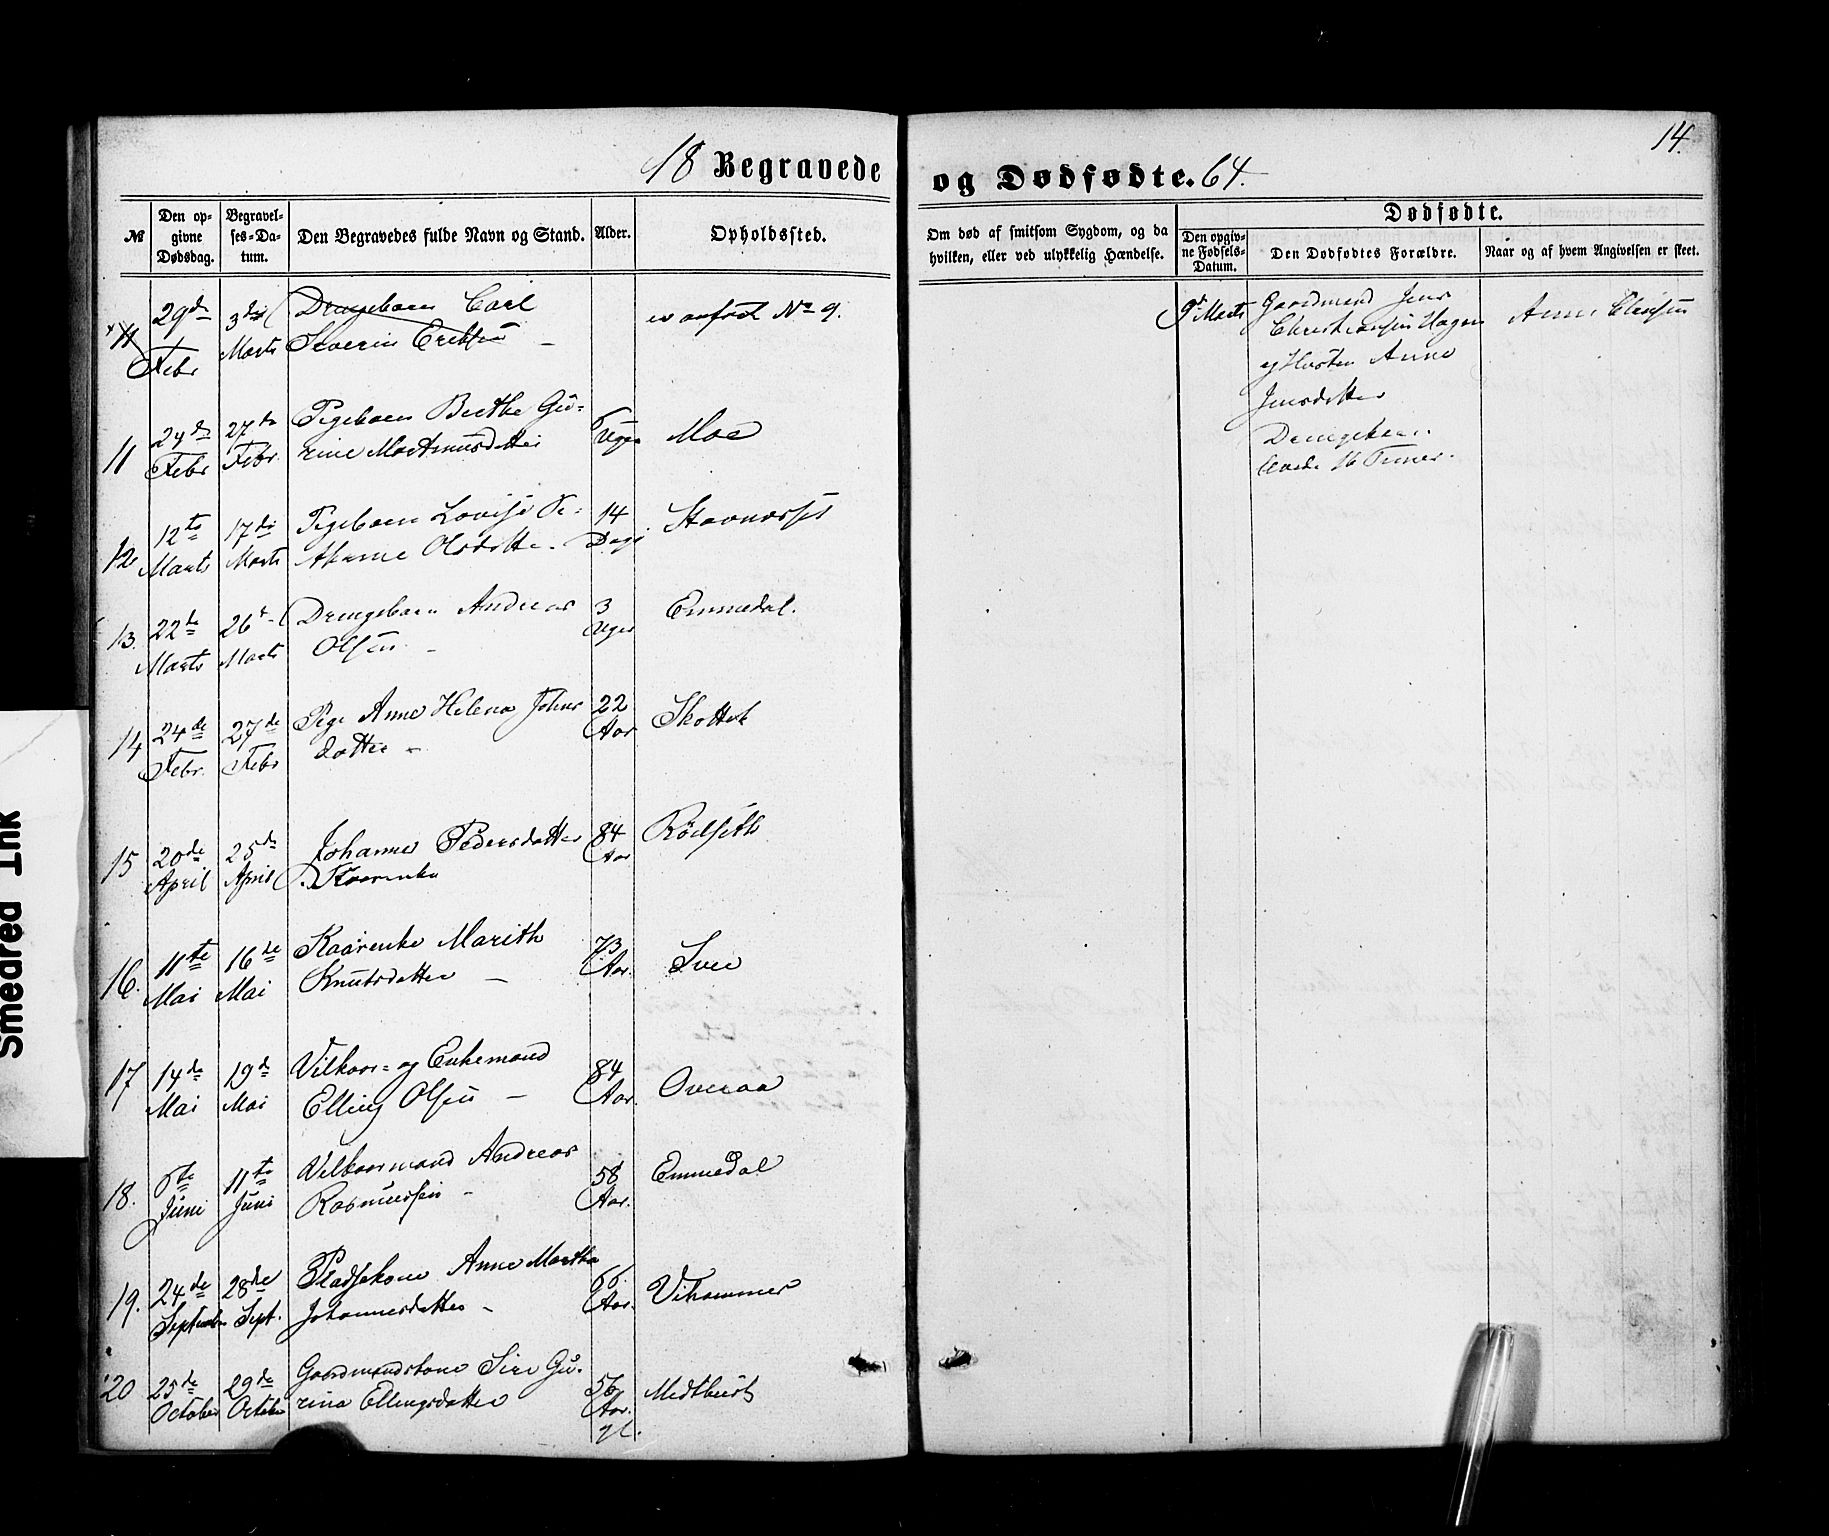 14.
18 Begravede og Dødfødte. 64.
№
Den opgivne Dødsdag.
Begravelses-Datum.
Den Begravedes fulde Navn og Stand.
Alder.
Opholdssted.
Om død af smitsom Sygdom, og da hvilken, eller ved ulykkelig Hændelse.
Dødfødte.
Den opgivne Fødsels-Datum.
Den Dødfødtes Forældre.
Naar og af hvem Angivelsen er skeet.
11 29de Febr 3die Marts Drengebarn Carl
Severin
anført No 9.
11 24de Febr 27de Febr. Pigebarn Berthe Gu=
rine Uger Moe
12 12te Marts 17de Marts Pigebarn Lovise Pe=
Olsdatter 14 Dage
13. 22de Marts 26de Marts Drengebarn Andreas
Olsen 3 Uger Emmedal.
14 24de Febr. 27de Febr Pige Anne Helena Johns
datter 22 Aar Skottek
15 20de April 25de April Johanne Pedersdatter 84 Aar Rødseth
16. 11te Mai 16de Mai Kaarenke Marith
Knutsdatter 73 Aar. Sve
17 14de Mai 19de Mai Vilkaar= og Enkemand
Elling Olsen 84 Aar. Overaa
18. 6te Juni 11te Juni Vilkaarmand Andreas
Rasmussen 58 Aar. Emmedal
19. 24de September 28de Sept. Pladsekone Anne Martha
Johannesdatter 66 Aar. Vihammer
20 25de October 29de October Gaardmandskone Siri Gu=
rina Ellingsdatter 56 Aar. gl. Midthust
9de Marts
Gaardmand Jens
Christiansen
og Hustru Anne
Jensdatter
Drengebarn
levede 16 Timer.